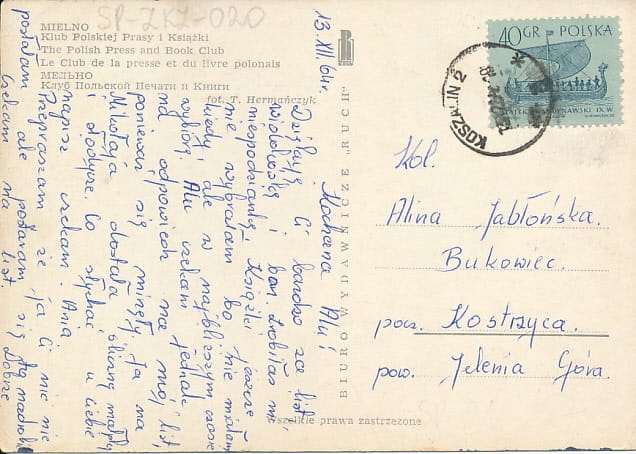 SP-ZKZ-020
MIELNO
Klub Polskiej Prasy i Książki
The Polish Press and Book Club
Le Club de la presse et du livre polonais
МЕЛЬНО
Клуб Польской Печати и Книги
fot. T. Hermańczyk
BIURO WYDAWNICZE „RUCH”
wszelkie prawa zastrzeżone
40 GR POLSKA
KOSZALIN 2
Kol.
Alina Jabłońska.
Bukowiec.
pocz. Kostrzyca.
pow. Jelenia Góra.
13.XII.64r.
Kochana Alu!
Dziękuję Ci bardzo za list
i bon. Zrobiłaś mi
niespodziankę. Książki jeszcze
nie wybrałam bo nie miałam
kiedy ale w najbliższym czasie
wybiorę. Alu czekam jednak
na odpowiedź na mój list,
ponieważ się minęły. Ja na
Mikołaja dostałam
i słodycze. Co słychać u Ciebie
napisz czekam. Ania
Przepraszam że ja Ci nic nie
posłałam ale postaram się
Czekam na list